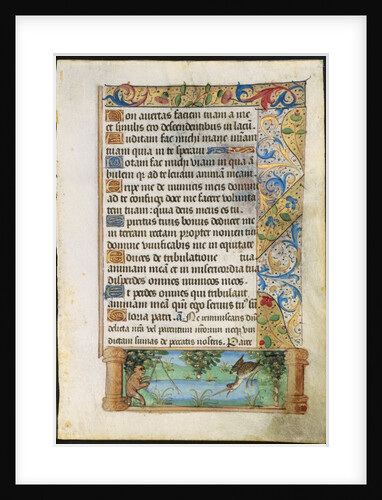 Non avertas faciem tuam a me
et similis ero descendentibus in lacū.
Auditam fac michi mane mīam
tuam quia in te speravi
Notam fac michi viam in qua ā
bulem qr ad te levavi animam meam
Eripe me de inimicis meis domine
ad te confugi doce me facere volunta
tem tuam: quia deus meus es tu.
Spiritus tuus bonus deducet me
in terram rectam propter nomen tuū
domine vivificabis me in equitate
Educes de tribulatione tua
animam meam et in misericordia tua
disperdes omnes inimicos meos
Et perdes omnes qui tribulant
animam meā qm̄ ego servus tu' sū
Gloria patri. a. Ne reminiscaris dn̄e
delicta nr̄a vel parentum nostrorum neq̨ vin
dictam sumas de peccatis nostris. Pater